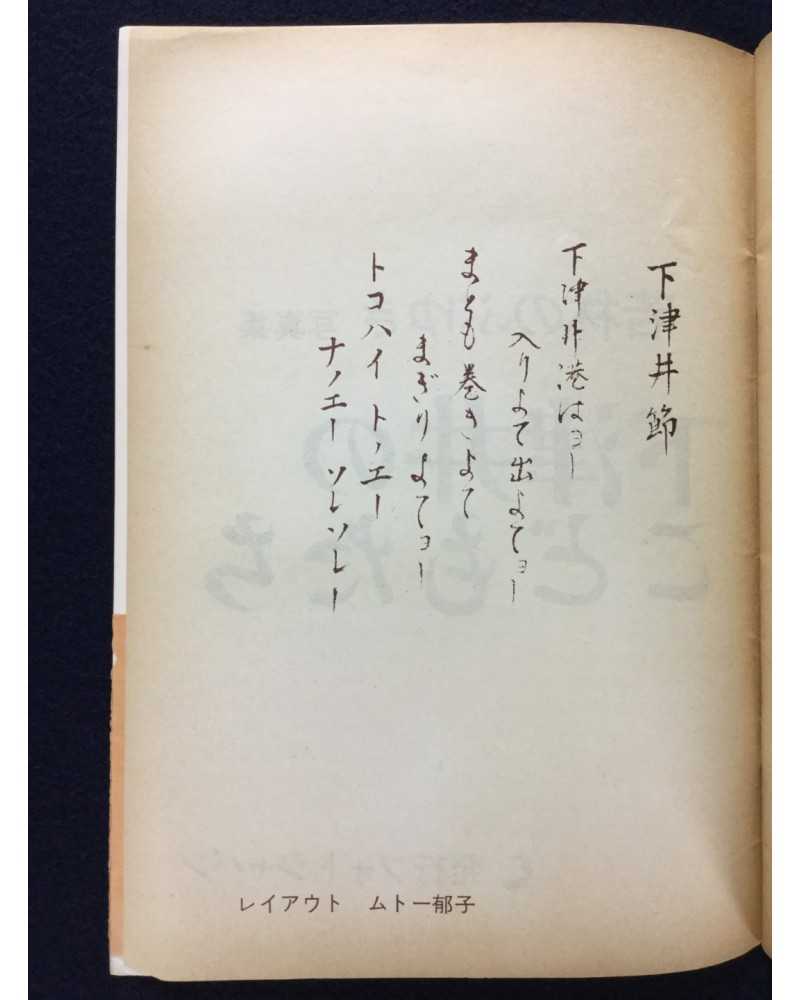 下津井節
下津井港はヨー
入りよて出よてヨー
まとも巻きよて
まぎりよてヨー
トコハイ トノエー
ナノエー ソレソレー
レイアウト　ムトー郁子